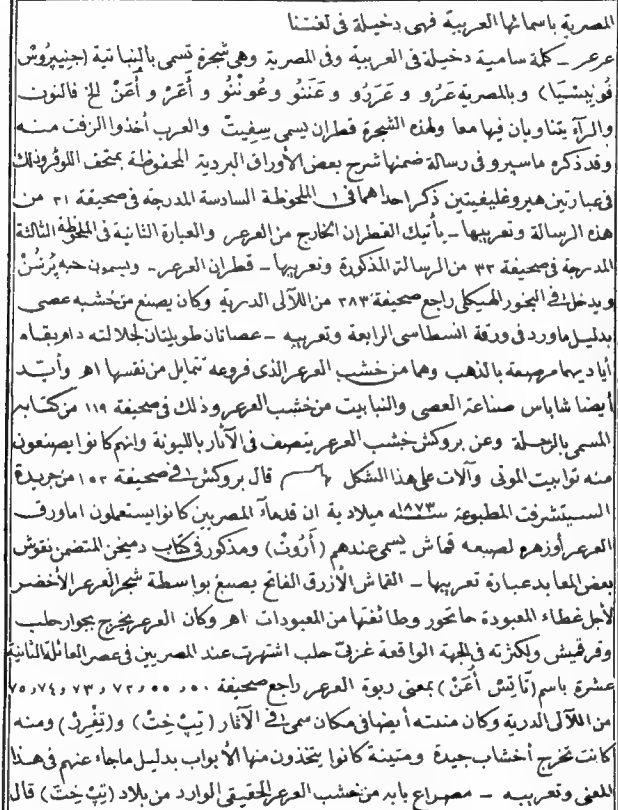 المصرية باسمائها العربية فهى دخيلة فى لغتنا
عرعر ــ كلمة سامية دخيلة فى العربية وفى المصرية وهى شجرة تسمى بالنباتية (جنيپروس
فونيسيا) وبالمصرية عَرُو وعَرَرُو وعَنَنُو وعُونْنُو وأَعَرْ وأَعَنْ الخ فالنون
والرآء يتناوبان فيها معا ولهذه الشجرة قطران يسمى سِفِيتْ والعرب أخذوا الزفت منه
وقد ذكره ماسپرو فى رسالة ضمنها شرح بعض الأوراق البردية المحفوظة بمتحف اللوڤر وذلك
فى عبارتين هيروغليفيتين ذكر احداهما فى الملحوظة السادسة المدرجة فى صحيفة ٢١ من
هذه الرسالة وتعريبها ــ يأتيك القطران الخارج من العرعر والعبارة الثانية فى الملحوظة الثالثة
المدرجة فى صحيفة ٣٢ من الرسالة المذكورة وتعريبها ــ قطران العرعر ــ ويسمون حبه پُرْشُنْ
ويدخل فى البخور الهيكلى راجع صحيفة ٢٨٣ من اللآلى الدرية وكان يصنع من خشبه عصى
بدليل ما ورد فى ورقة انسطاسى الرابعة وتعريبه ــ عصاتان طويلتان لجلالته دام بقاه
أياديهما مرصعة بالذهب وهما من خشب العرعر الذى فروعه تتمايل من نفسها اه وأيّد
أيضا شاباس صناعة العصى والنبابيت من خشب العرعر وذلك فى صحيفة ١١٩ من كتابه
المسمى بالرحلة وعن بروكش خشب العرعر يتصف فى الآثار بالليونة وانهم كانوا يصنعون
منه توابيت الموتى وآلات على هذا الشكل قال بروكش فى صحيفة ١٥٢ من جريدة
الستشرفت المطبوعة سنة ١٨٧٣ ميلادية ان قدماء المصريين كانوا يستعملون اما ورق
العرعر أو زهره لصبعه قماش يسمى عندهم (أَرُوتْ) ومذكور فى كتاب دميخن المتضمن نقوش
بعض المعابد عبارة تعريبها ــ القماش الأزرق الفاتح يصبغ بواسطة شجر العرعر الأخضر
لأجل غطاء المعبودة حاتحور وطائفتها من المعبودات اه وكان العرعر يخرج بجوار حلب
وقرقميش ولكثرته فى الجهة الواقعة غربىّ حلب اشتهرت عند المصريين فى عصر العائلة الثانية
عشرة باسم (تَاتِسْ أُعَنْ) بمعنى ربوة العرعر راجع صحيفة ٥٠ ، ٥٥ ، ٧٢ ، ٧٣ ، ٧٤ ، ٧٥
من اللآلى الدرية وكان منبته أيضا فى مكان سمى فى الآثار (تِپْ خِتْ) و(تِفْرِرْ) ومنه
كانت تخرج أخشاب جيدة ومتينة كانوا يتخذون منها الأبواب بدليل ما جاء عنهم فى هذا
المعنى وتعريبه ــ مصراع بابه من خشب العرعر الحقيقى الوارد من بلاد (تِپْ خِتْ) قال